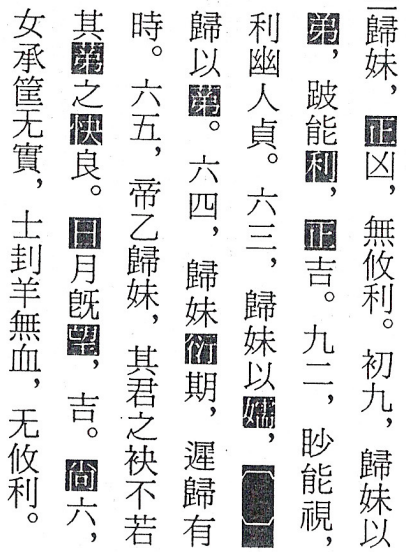 歸妹，正凶，無攸利。初九，歸妹以
弟，跛能利，正吉。九二，眇能視，
利幽人貞。六三，歸妹以嬬，〔　〕
歸以弟。六四，歸妹衍期，遲歸有
時。六五，帝乙歸妹，其君之袂不若
其弟之快良。日月既望，吉。尙六，
女承筐无實，士刲羊無血，无攸利。